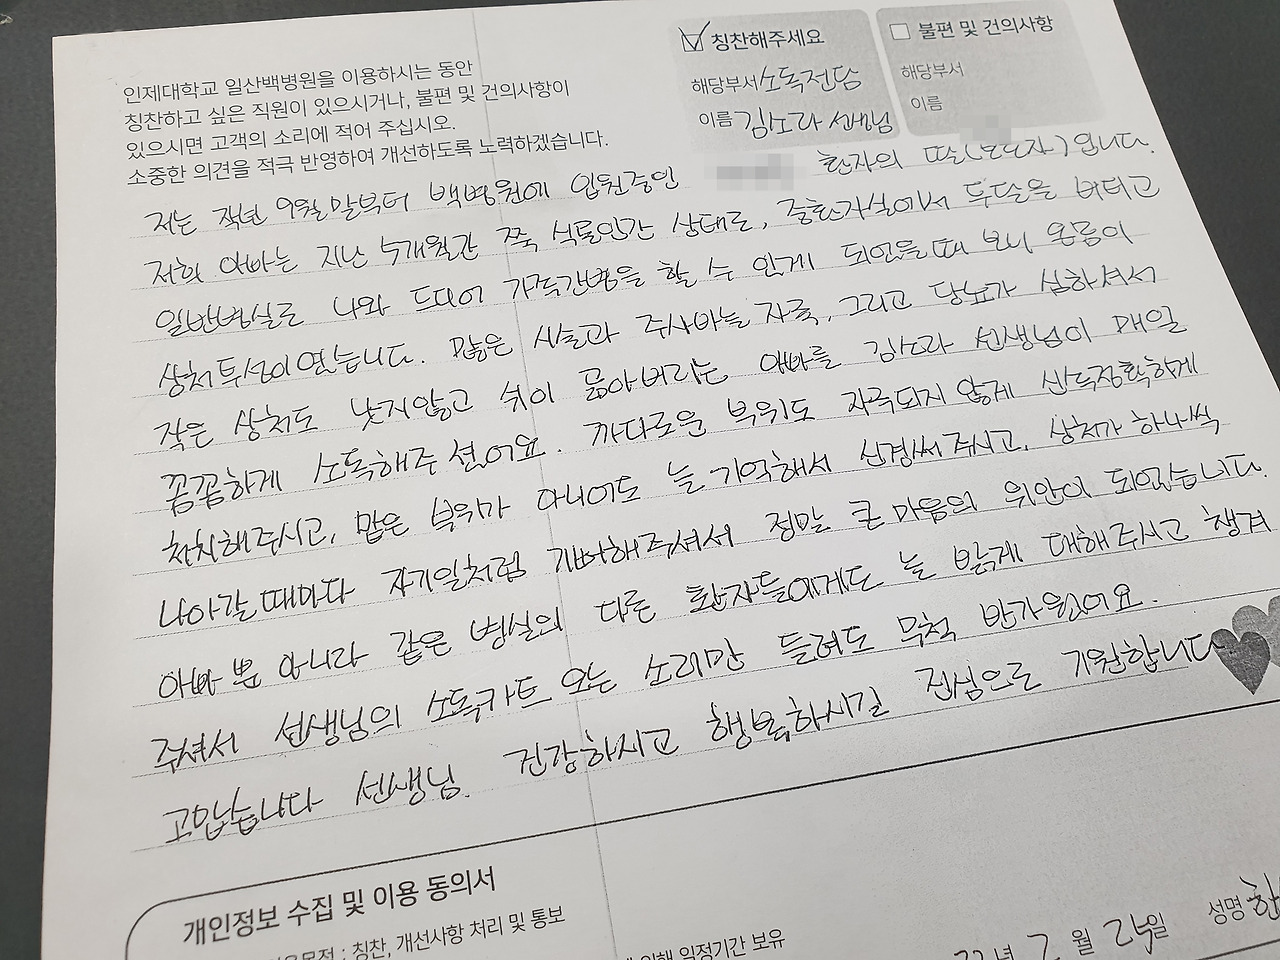 인제대학교 일산백병원을 이용하시는 동안
칭찬하고 싶은 직원이 있으시거나, 불편 및 건의사항이
있으시면 고객의 소리에 적어 주십시오.
소중한 의견을 적극 반영하여 개선하도록 노력하겠습니다.
칭찬해주세요
해당부서 소독전담
이름 김소라 선생님
불편 및 건의사항
해당부서
이름
저는 작년 9월말부터 백병원에 입원중인 환자의 딸(보호자)입니다.
저희 아빠는 지난 5개월간 쭉 식물인간 상태로, 중환자실에서 두달을 버티고
일반병실로 나와 드디어 가족간병을 할 수 있게 되었을때 보니 온몸이
상처투성이였습니다. 많은 시술과 주사바늘 자국, 그리고 당뇨가 심하셔서
작은 상처도 낫지않고 쉬이 곪아버리는 아빠를 김소라 선생님이 매일
꼼꼼하게 소독해주셨어요. 까다로운 부위도 자극되지 않게 신속정확하게
처치해주시고, 맡은 부위가 아니어도 늘 기억해서 신경써주시고, 상처가 하나씩
나아갈때마다 자기일처럼 기뻐해주셔서 정말 큰 마음의 위안이 되었습니다.
아빠 뿐 아니라 같은 병실의 다른 환자들에게도 늘 밝게 대해주시고 챙겨
주셔서 선생님의 소독카트 오는 소리만 들려도 무척 반가웠어요.
고맙습니다 선생님. 건강하시고 행복하시길 진심으로 기원합니다
개인정보 수집 및 이용 동의서
: 칭찬, 개선사항 처리 및 통보
일정기간 보유
22년 2월 24일 성명